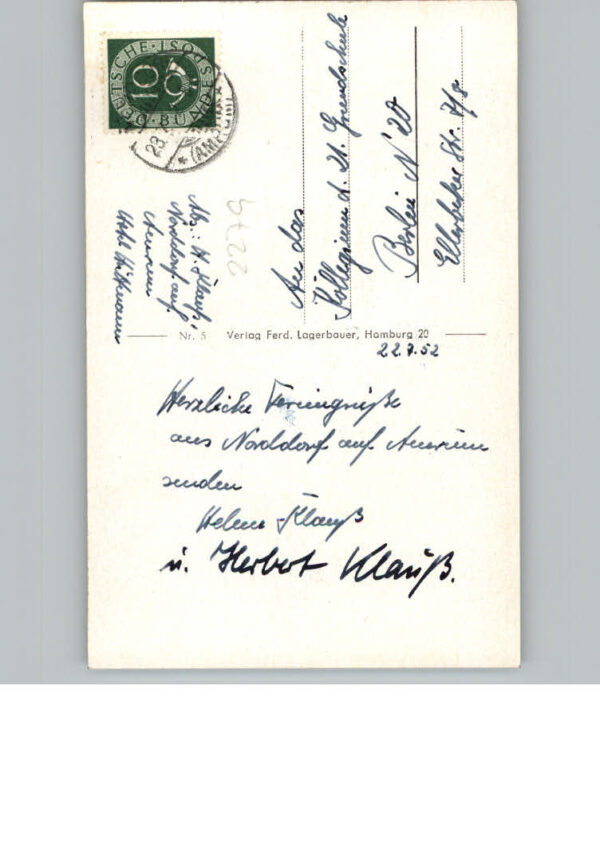 DEUTSCHE·BUNDESPOST
10
(AMRUM)
An das
Kollegium d. 21. Grundschule
Berlin N 20
Ellerbeker Str. 7/8
Abs.: H. Klauß,
Norddorf auf
Amrum
5722
Nr. 5 Verlag Ferd. Lagerbauer, Hamburg 20
22.7.52
Herzliche Feriengrüße
aus Norddorf auf Amrum
senden
Helene Klauß
u. Herbert Klauß.